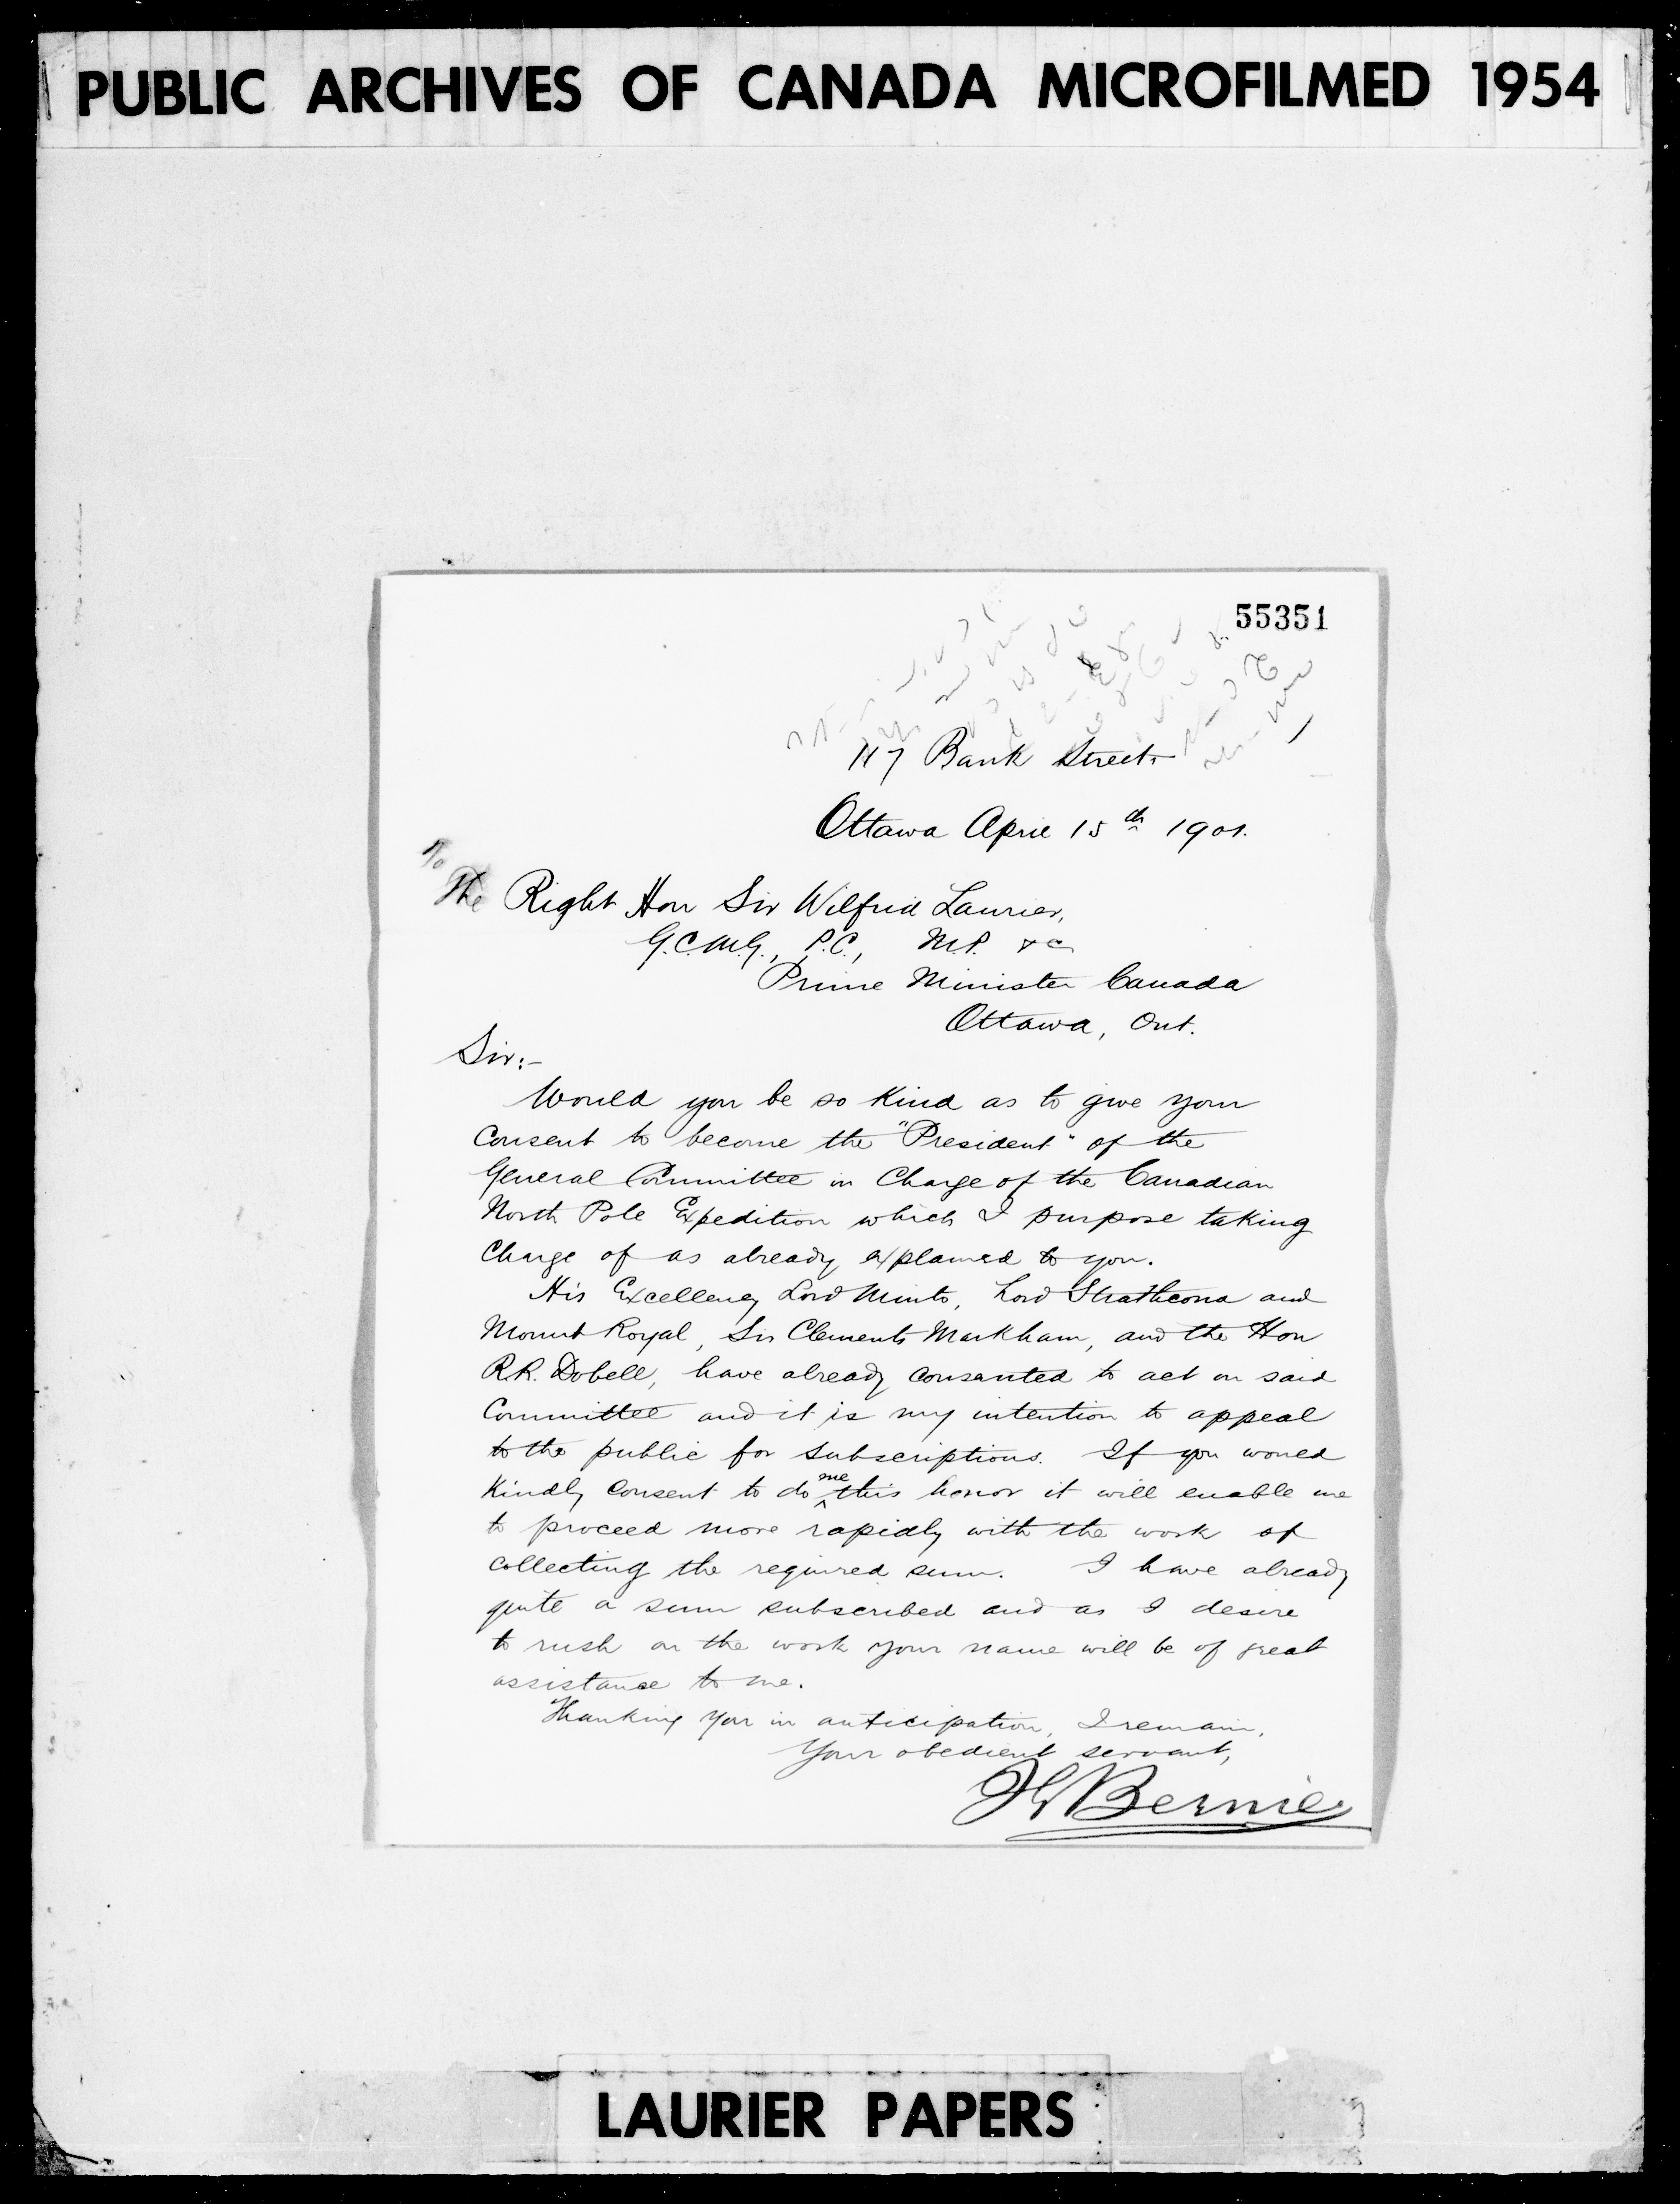 PUBLIC ARCHIVES OF CANADA MICROFILMED 1954
55351
117 Bank Street
Ottawa April 15th 1901.
To
The Right Hon Sir Wilfrid Laurier,
G.C.M.G., P.C., M.P. &c
Prime Minister Canada
Ottawa, Ont.
Sir:-
Would you be so kind as to give your
consent to become the "President" of the
General Committee in Charge of the Canadian
North Pole Expedition which I purpose taking
Charge of as already explained to you.
His Excellency Lord Minto, Lord Strathcona and
Mount Royal, Sir Clements Markham, and the Hon
R.R. Dobell, have already consented to act on said
Committee and it is my intention to appeal
to the public for subscriptions. If you would
Kindly consent to do me this honor it will enable me
to proceed more rapidly with the work of
collecting the required sum. I have already
quite a sum subscribed and as I desire
to rush on the work your name will be of great
assistance to me.
Thanking you in anticipation, I remain,
Your obedient servant,
J E Bernier
LAURIER PAPERS